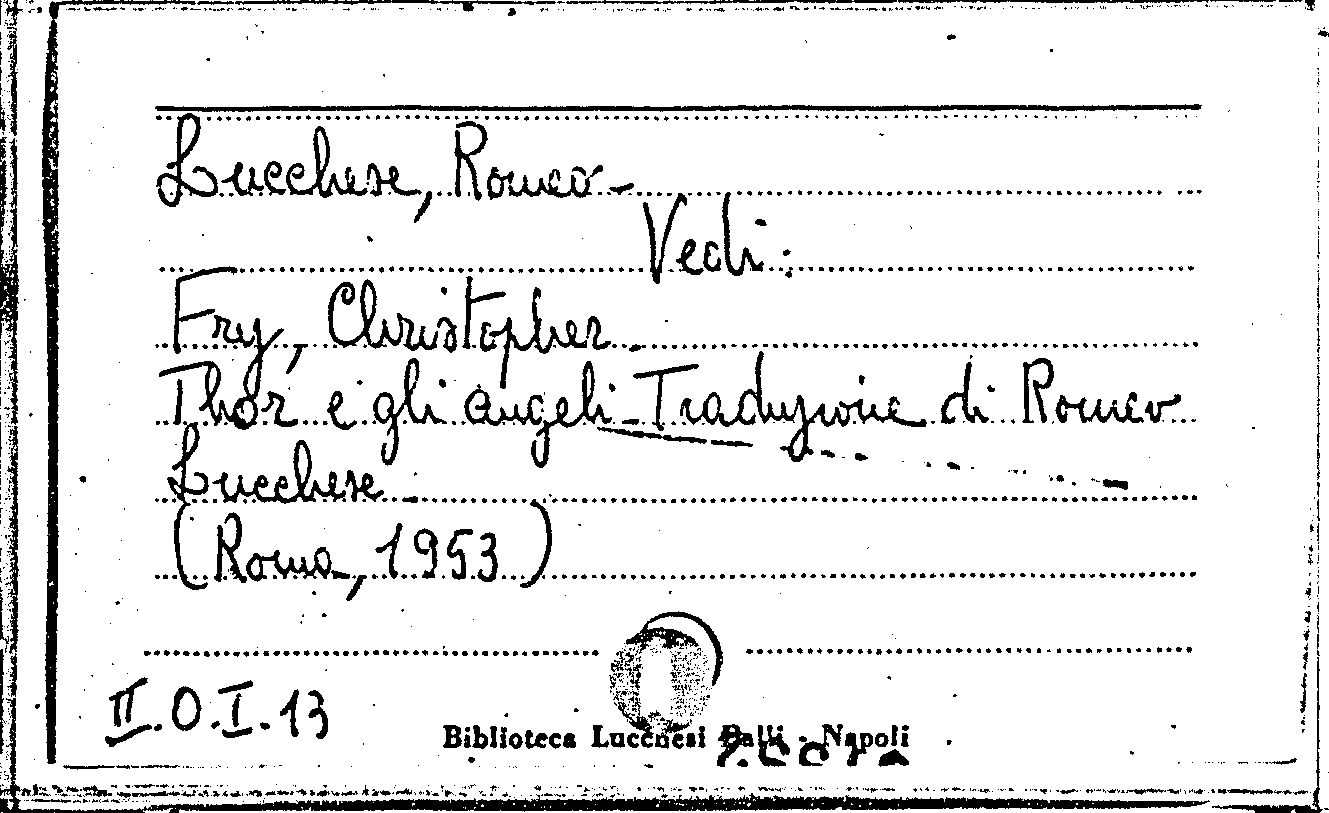 Lucchese, Romeo -
Vedi:
Fry, Christopher.
Thor e gli angeli - Traduzione di Romeo
Lucchese.
(Roma, 1953)
II.O.I.13
Biblioteca Lucchesi Palli - Napoli